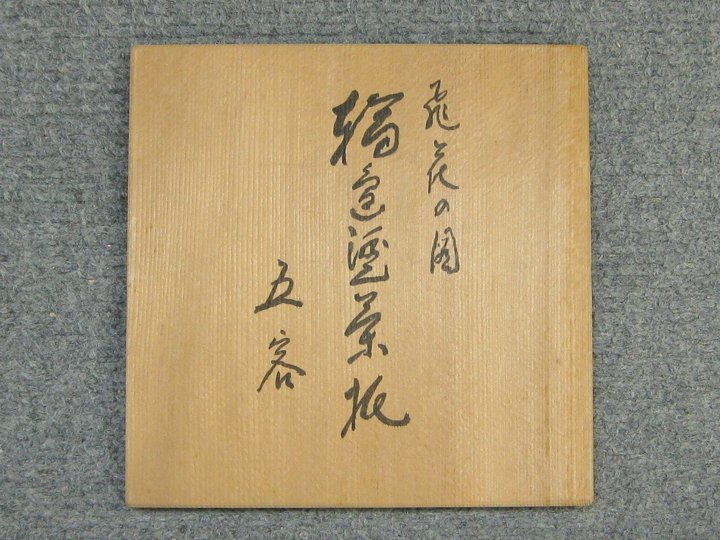 飛花の図
輪島塗茶托
五客